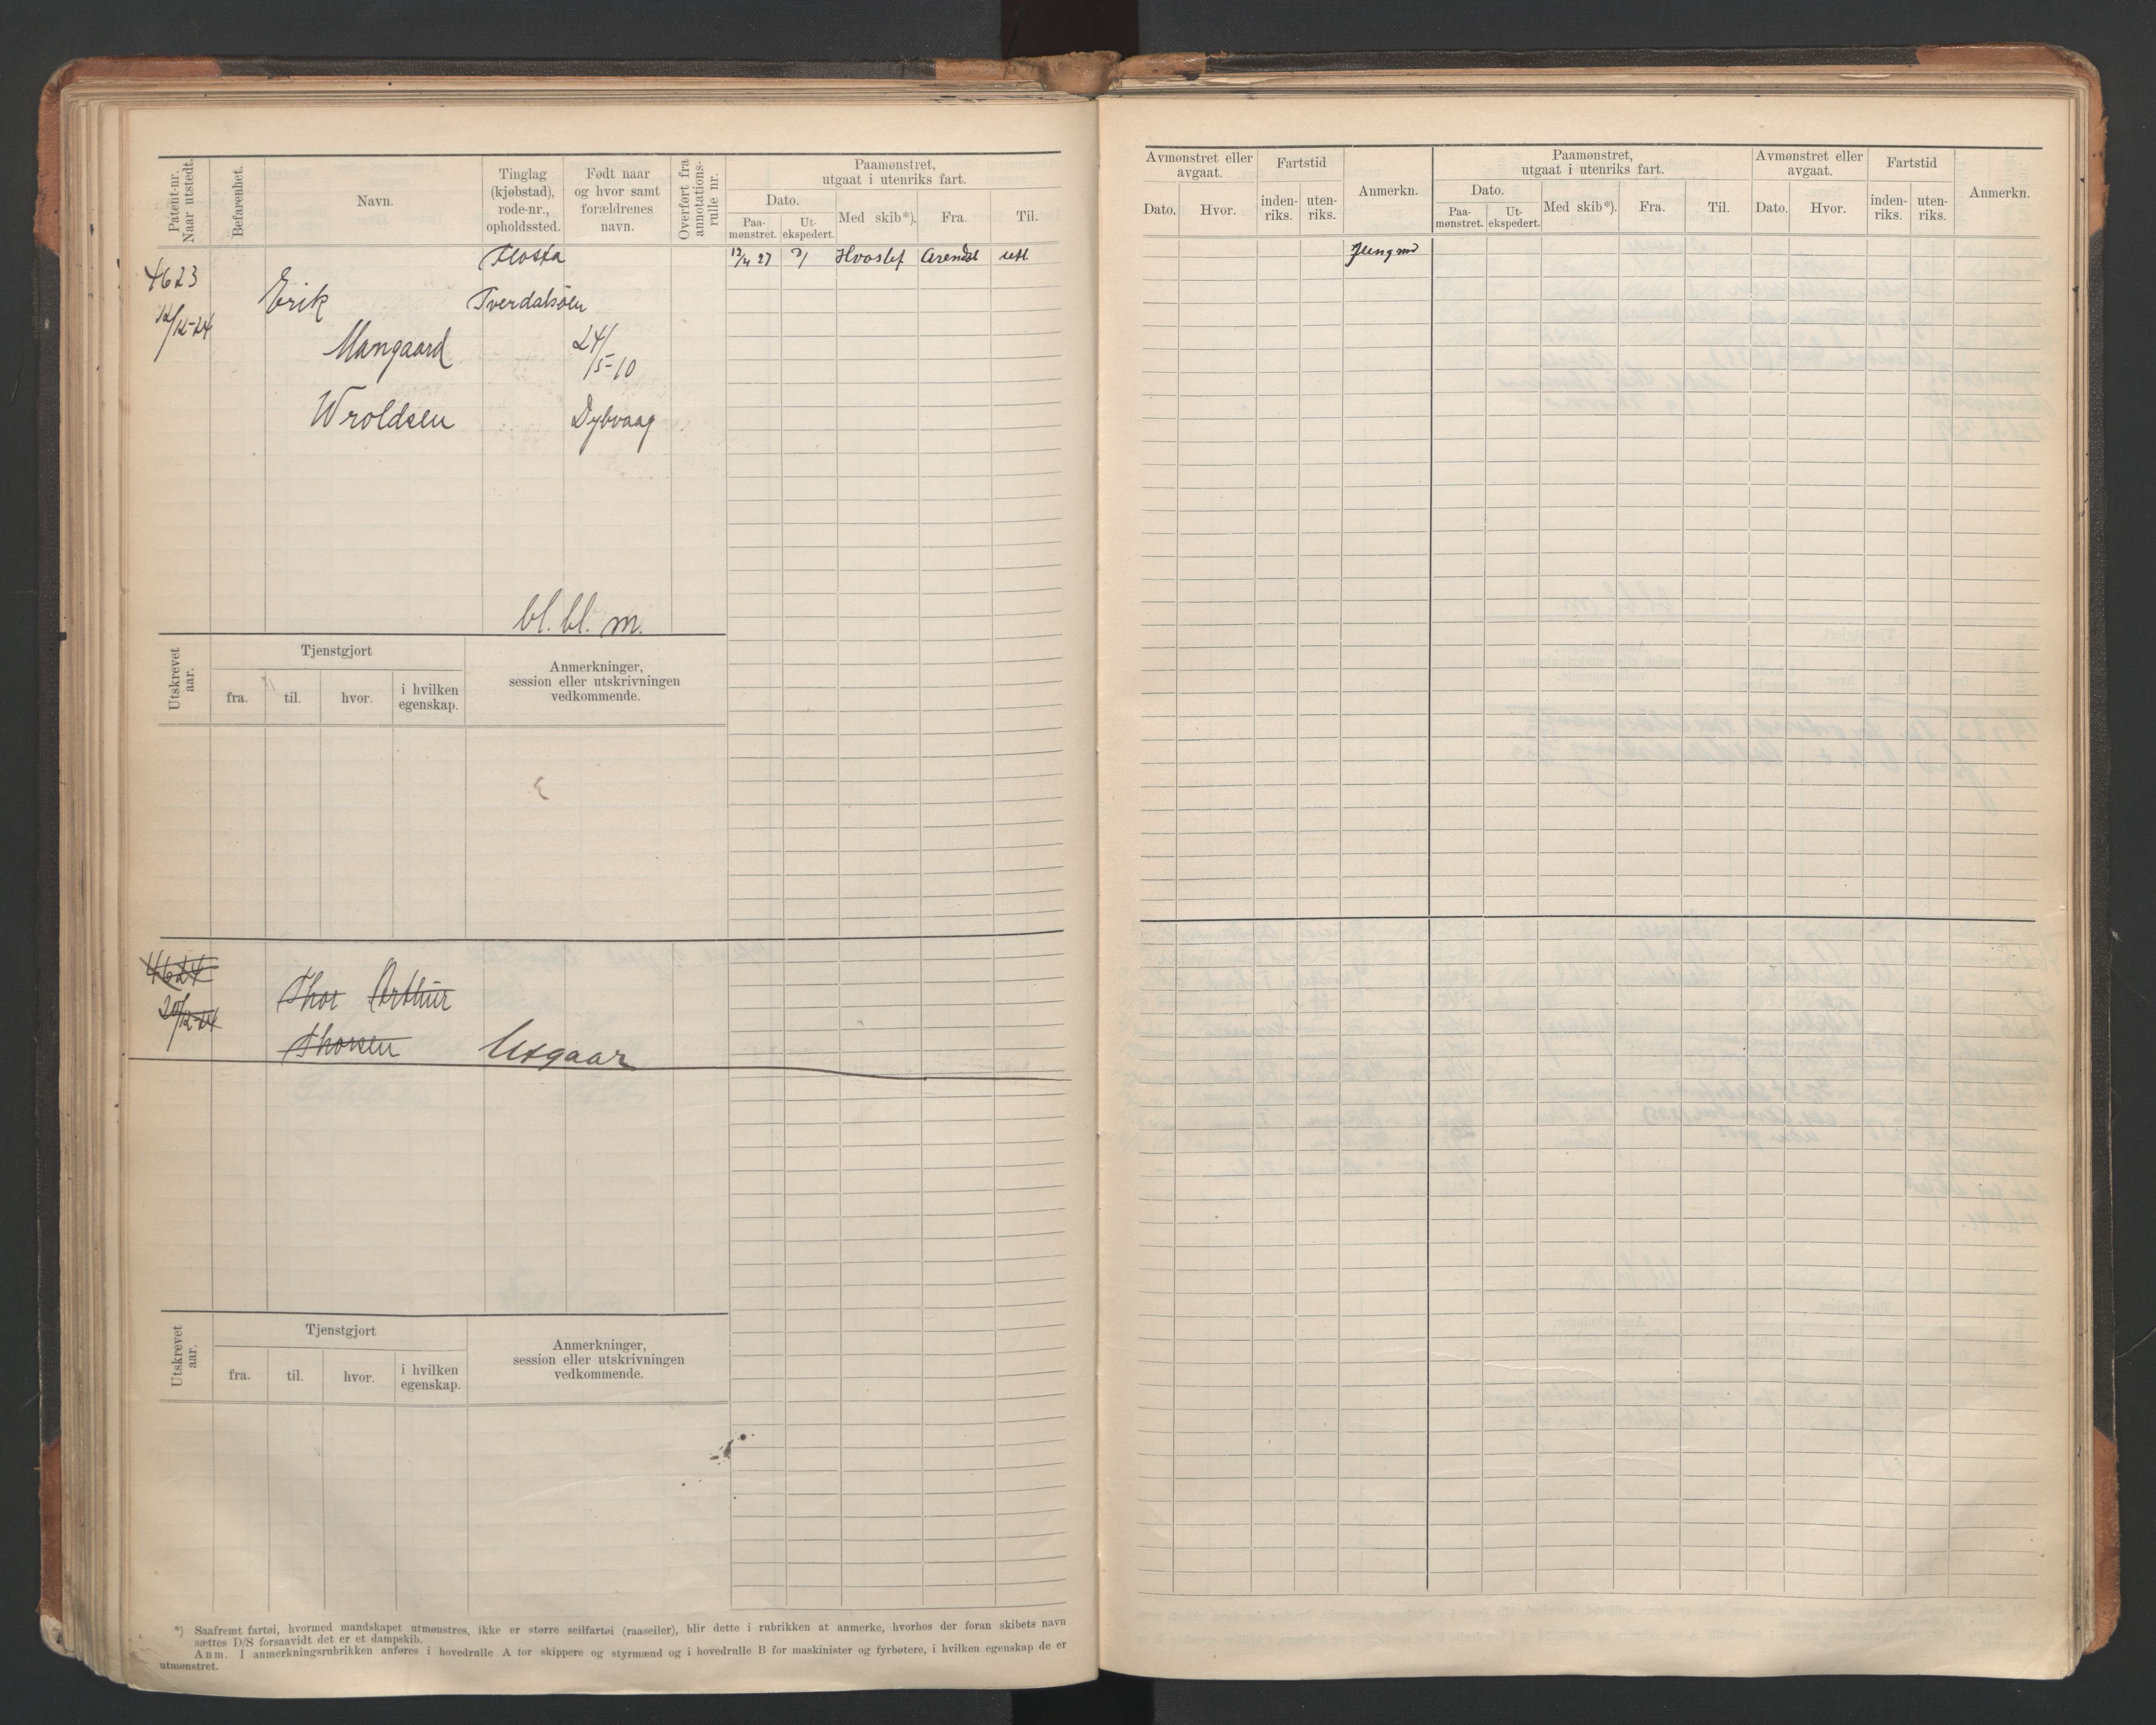 Patent-nr. Naar utstedt.
Befarenhet.
Navn.
Tinglag (kjøbstad), rode-nr., opholdssted.
Født naar og hvor samt forældrenes navn.
Overført fra annotations-rulle nr.
Paamønstret, utgaat i utenriks fart.
Dato.
Paa-mønstret.
Ut-ekspedert.
Med skib*).
Fra.
Til.
Flosta
12/4 27
Arendal
4623
12/12-24
Erik
Tverdalsøen
Mangaard
24/5-10
Wroldsen
Dybvaag
bl. bl. m.
Utskrevet aar.
Tjenstgjort
fra.
til.
hvor.
i hvilken egenskap.
Anmerkninger, session eller utskrivningen vedkommende.
4624
20/12-24
Thor Arthur
Thorsen
Utgaar
Utskrevet aar.
Tjenstgjort
fra.
til.
hvor.
i hvilken egenskap.
Anmerkninger, session eller utskrivningen vedkommende.
*) Saafremt fartøi, hvormed mandskapet utmønstres, ikke er større seilfartøi (raaseiler), blir dette i rubrikken at anmerke, hvorhos der foran skibets navn
sættes D/S forsaavidt det er et dampskib.
Anm. I anmerkningsrubrikken anføres i hovedrulle A for skippere og styrmænd og i hovedrulle B for maskinister og fyrbøtere, i hvilken egenskap de er
utmønstret.
Avmønstret eller avgaat.
Dato.
Hvor.
Fartstid
inden-riks.
uten-riks.
Anmerkn.
Paamønstret, utgaat i utenriks fart.
Dato.
Paa-mønstret.
Ut-ekspedert.
Med skib*).
Fra.
Til.
Avmønstret eller avgaat.
Dato.
Hvor.
Fartstid
inden-riks.
uten-riks.
Anmerkn.
Jungmd